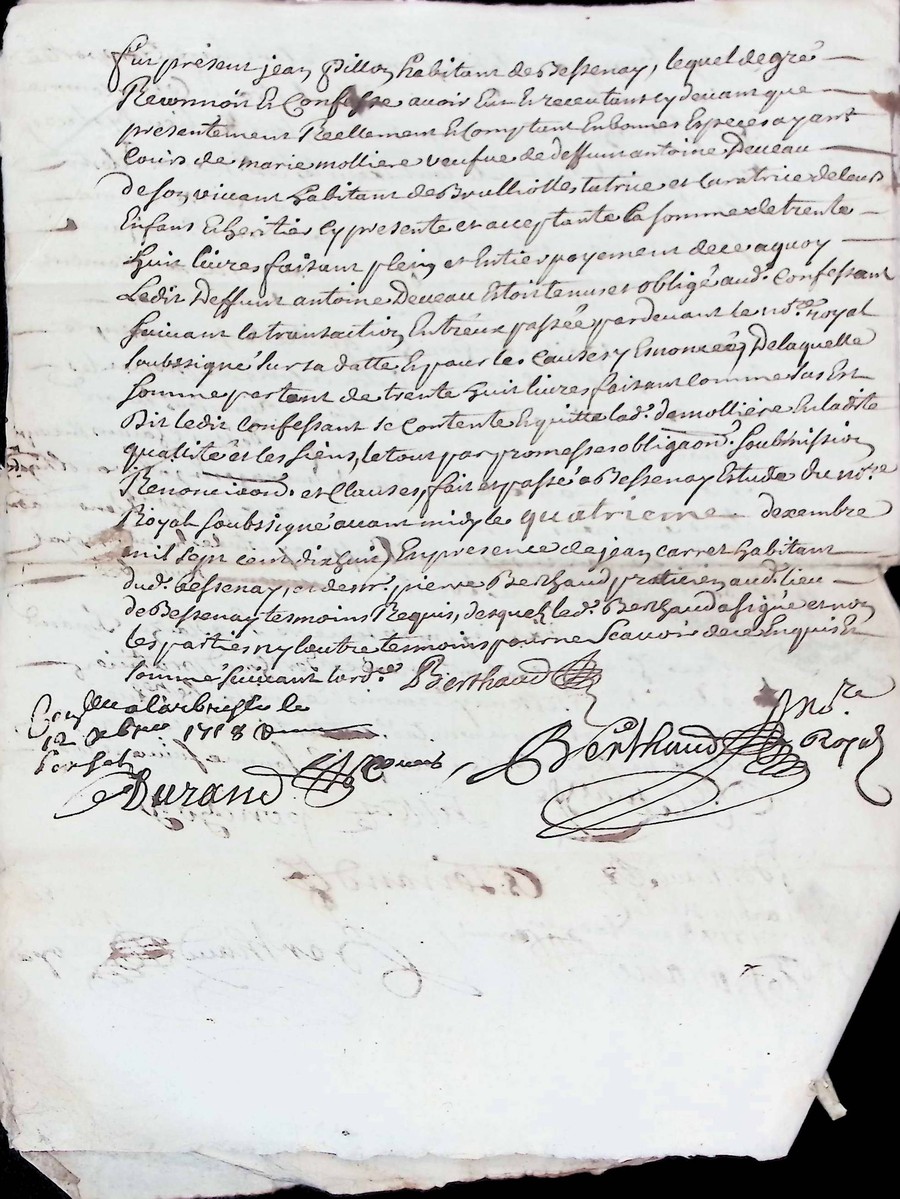 fut présent jean Pillon habitant de Bessenay, lequel de gré
Reconnoit Et Confesse avoir Eut Et receu tant cy devant que
presentement Réellement Et Comptant En bonnes Especes ayant
Cours de marie molliere veufve de deffunt antoine Deveau
de son vivant habitant de Brulliolles tutrice et Curatrice de leurs
Enfans Et héritiers cy presente et acceptante la somme de trente
huit livres faisant plein et Entier payement de ce a quoy
Ledit Deffunt antoine Deveau Estoit tenus et obligé aud. Confessant
suivant la transaction Entréux passée pardevant le no.re royal
soubssigné sur sa datte Et pour les Causes y Enoncéés, De laquelle
somme partant de trente huit livres faisant Comme sus Est
Dit ledit Confessant se Contente Et quitte lad. de molliere En ladte
quallité et les siens, le tout par promesses obligaon.s soubmission
Renonciaon.s et Clauses, fait et passé a Bessenay Estude du no.re
Royal soubssigné avant midy le quatrieme dexembre
mil sept cent dix huit En presence de jean Carret habitant
dud. bessenay, et de sr. pierre Berthaud praticien aud. lieu
de Bessenay tesmoins Requis, desquels led. Berthaud a signé et non
les parties ny l'autre tesmoins pour ne Scavoir de ce Enquis Et
sommé suivant lord.ce Berthaud
Conllé a larbresle le
12 xbre 1718
Berthaud no.re Royal
Durand